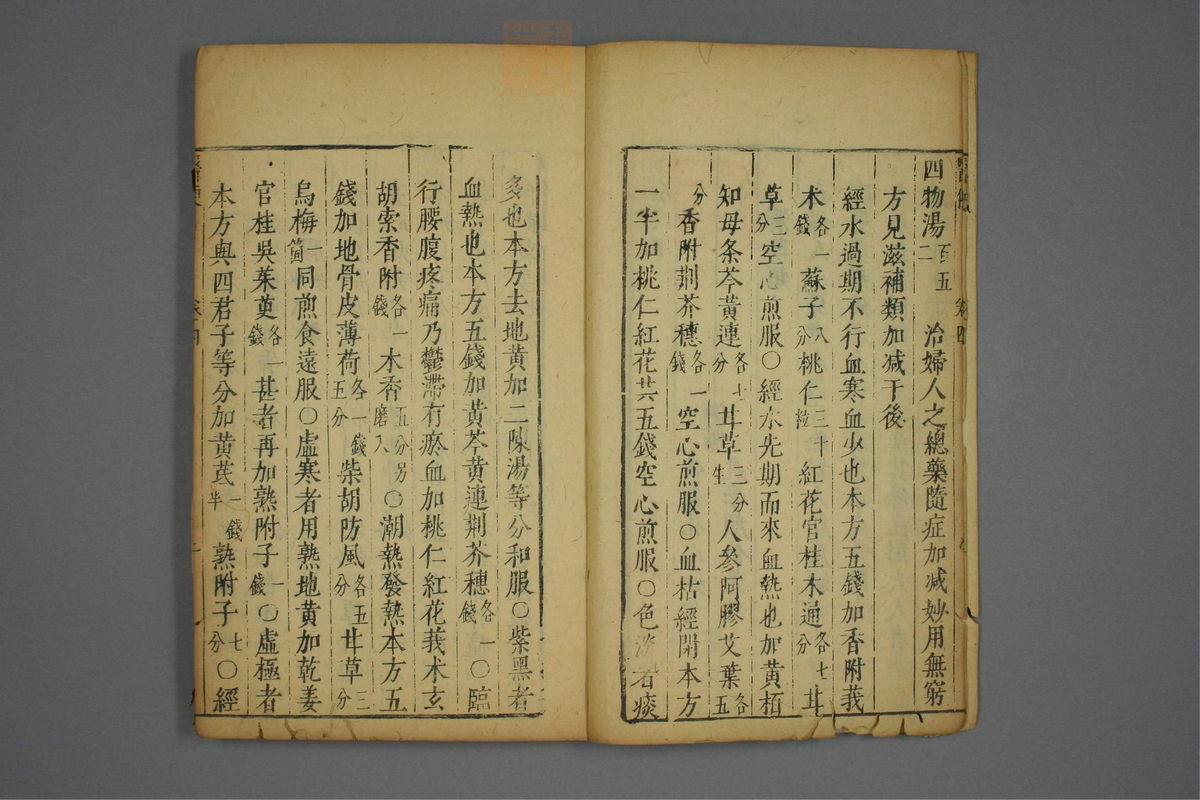 四物湯百五二 治婦人之總藥隨症加減妙用無窮
方見滋補類加減于後
經水過期不行血寒血少也本方五錢加香附莪
术各一錢蘇子八分桃仁三十粒紅花官桂木通各七分甘
草三分空心煎服○經水先期而來血熱也加黃栢
知母条芩黃連各七分甘草生三分人參阿膠艾葉各五
分香附荆芥穗各一錢空心煎服○血枯經閉本方
一半加桃仁紅花共五錢空心煎服○色淡者痰
多也本方去地黃加二陳湯等分和服○紫黑者
血熱也本方五錢加黃芩黃連荆芥穗各一錢○臨
行腰腹疼痛乃鬱滯有瘀血加桃仁紅花莪术玄
胡索香附各一錢木香五分另磨入○潮熱發熱本方五
錢加地骨皮薄荷各一錢五分柴胡防風各五分甘草三分
烏梅一箇同煎食遠服○虛寒者用熟地黃加乾姜
官桂吳茱萸各一錢甚者再加熟附子一錢○虛極者
本方與四君子等分加黃芪一錢半熟附子七分○經